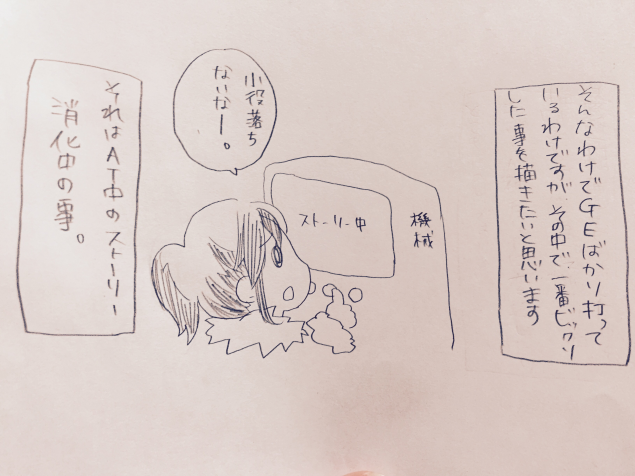 そんなわけでGEばかり打って
いるわけですが、その中で、一番ビックリ
した事を描きたいと思います
機械
ストーリー中
小役落ち
ないなー。
それはAT中のストーリー
消化中の事。